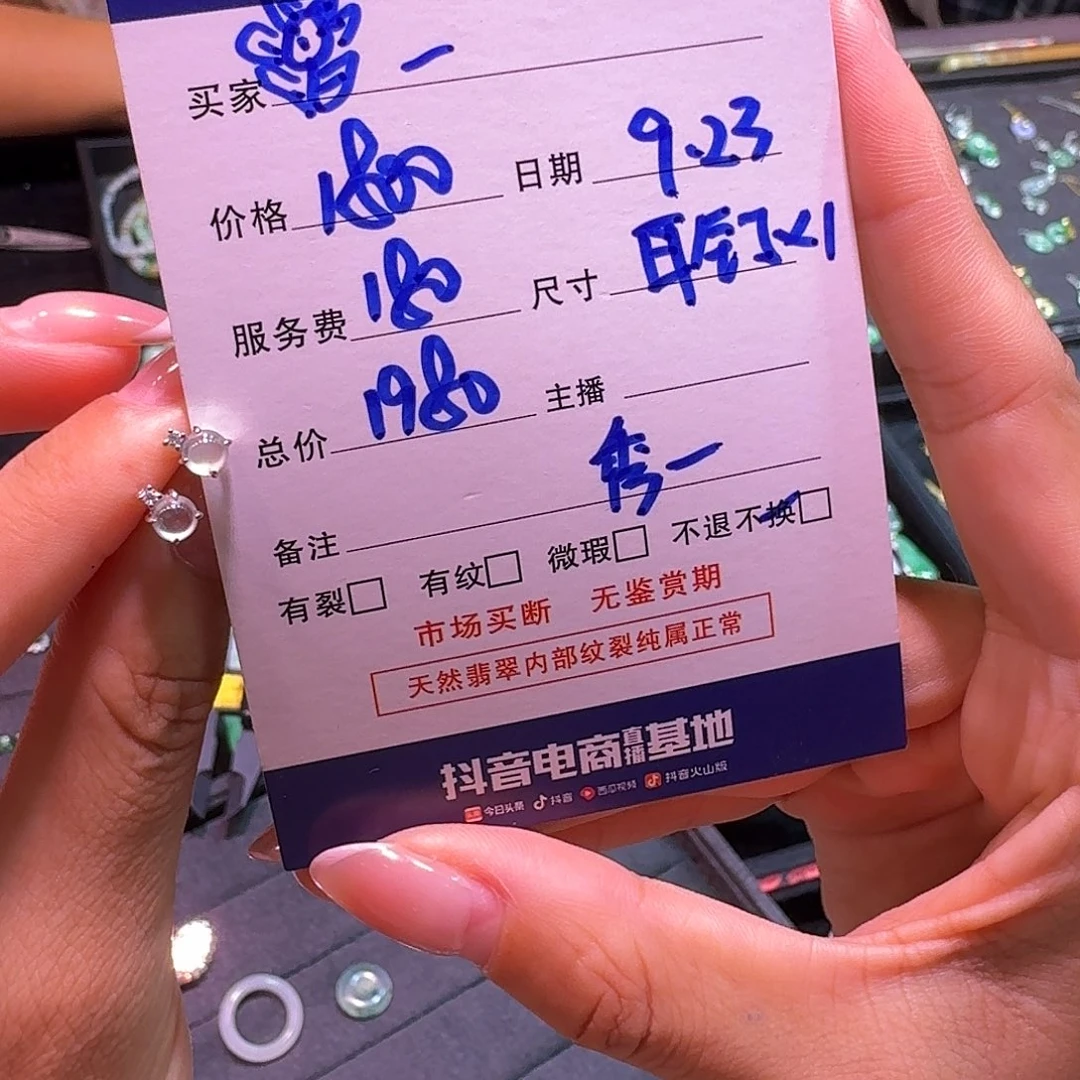 买家 一
价格 1800 日期 9.23
服务费 180 尺寸 耳钉×1
总价 1980 主播
备注 秀一
有裂□ 有纹□ 微瑕□ 不退不换□
市场买断 无鉴赏期
天然翡翠内部纹裂纯属正常
抖音电商直播基地
今日头条 抖音 西瓜视频 抖音火山版